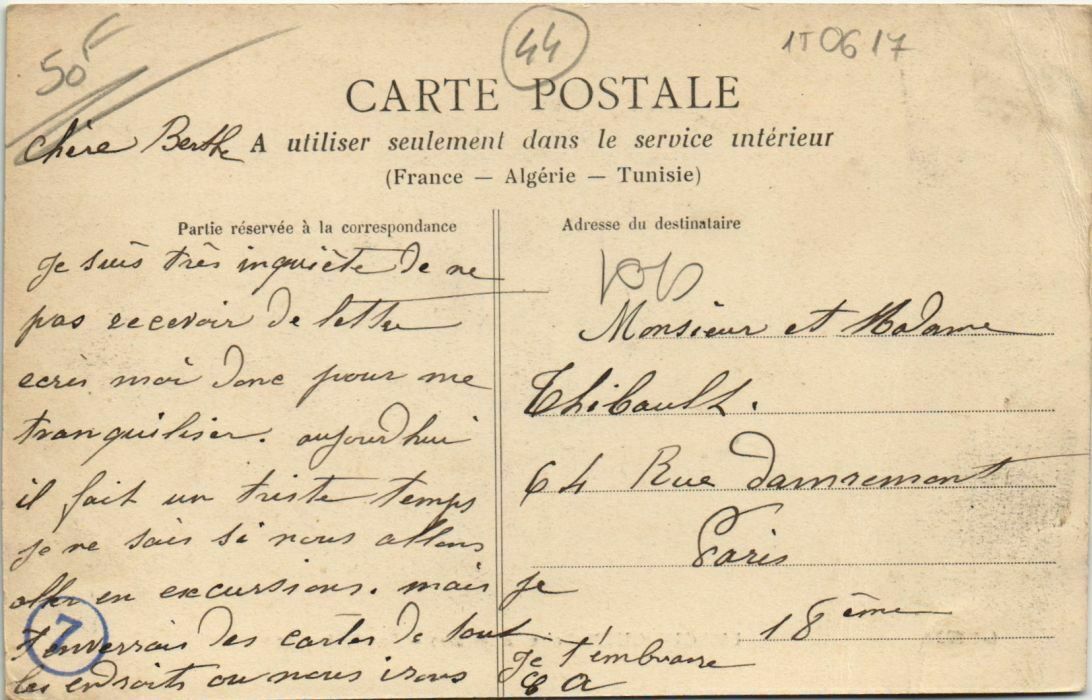 50F
44
1T0617
CARTE POSTALE
chère Berthe
A utiliser seulement dans le service intérieur
(France — Algérie — Tunisie)
Partie réservée à la correspondance
je suis très inquiète de ne
pas recevoir de lettre
ecris moi donc pour me
tranquiliser. aujourdhui
il fait un triste temps
je ne sais si nous allons
aller en excursions. mais je
t'enverrais des cartes de tout
les endroits ou nous irons
je t'embrasse
7
Adresse du destinataire
Monsieur et Madame
Thibault.
64 Rue damremont
Paris
18ème